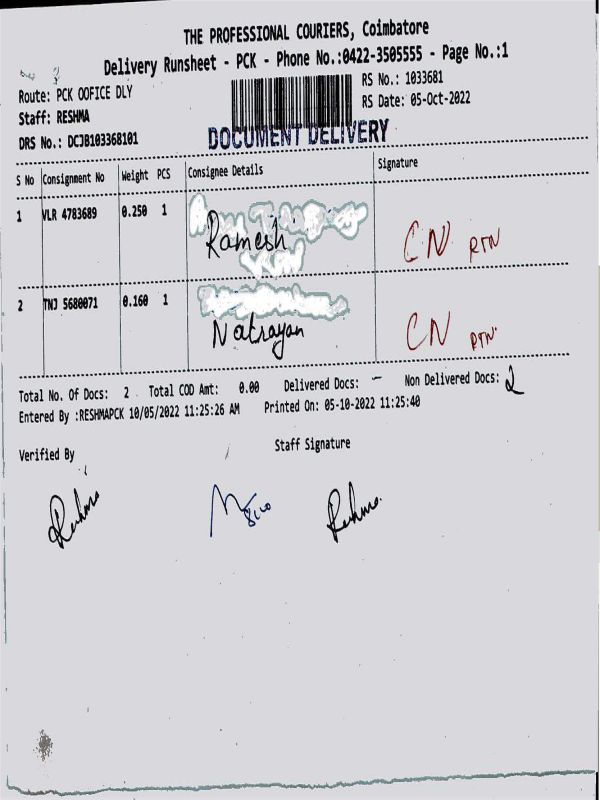 THE PROFESSIONAL COURIERS, Coimbatore
Delivery Runsheet - PCK - Phone No.:0422-3505555 - Page No.:1
Route: PCK OOFICE DLY
RS No.: 1033681
Staff: RESHMA
RS Date: 05-Oct-2022
DRS No.: DCJB103368101
DOCUMENT DELIVERY
S No Consignment No Weight PCS Consignee Details Signature
1 VLR 4783689 0.250 1 Ramesh CN RTN
2 TNJ 5680071 0.160 1 Natrayan CN RTN
Total No. Of Docs: 2 Total COD Amt: 0.00 Delivered Docs: - Non Delivered Docs: 2
Entered By :RESHMAPCK 10/05/2022 11:25:26 AM Printed On: 05-10-2022 11:25:40
Verified By Staff Signature
Reshma Reshma